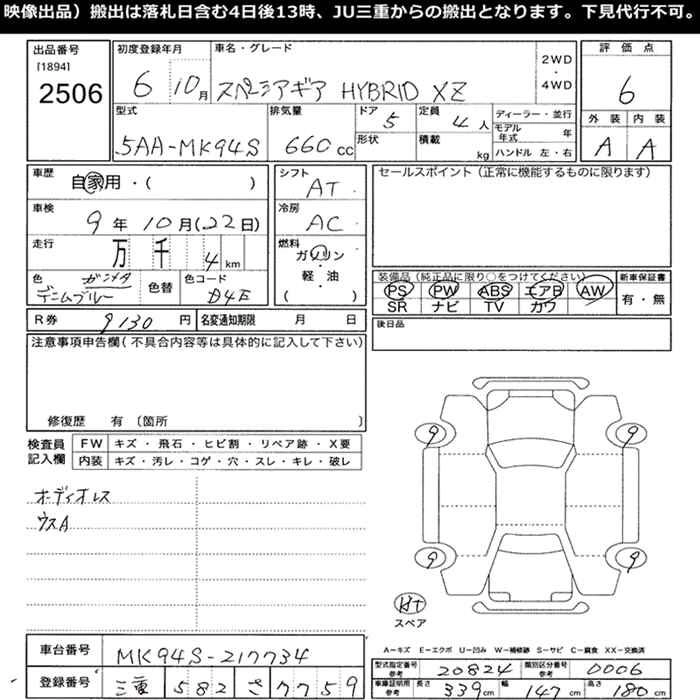 映像出品）搬出は落札日含む4日後13時、JU三重からの搬出となります。下見代行不可。
出品番号
[1894]
2506
初度登録年月
6 10月
車名・グレード
スペーシアギア HYBRID XZ
2WD
・
4WD
評価点
6
型式
5AA-MK94S
排気量
660cc
ドア
5
形状
定員
4人
積載
kg
ディーラー・並行
モデル年式 年
ハンドル 左・右
外装 内装
A A
車歴
自家用・( )
車検
9年10月(22日)
走行
万 千 4km
色
ガンメタ
デニムブルー
色替
色コード
D4E
シフト
AT
冷房
AC
燃料
ガソリン
・
軽・油
( )
セールスポイント（正常に機能するものに限ります）
装備品（純正品に限り○をつけてください）
PS PW ABS エアB AW
SR ナビ TV カワ
新車保証書
有・無
R券 9130円
名変通知期限 月 日
後日品
注意事項申告欄（不具合内容等は具体的に記入して下さい）
修復歴 有〔箇所 〕
検査員記入欄
FW キズ・飛石・ヒビ割・リペア跡・X要
内装 キズ・汚レ・コゲ・穴・スレ・キレ・破レ
オーディオレス
ウスA
9 9
9 9
スペア
A－キズ E－エクボ U－凹み W－補修跡 S－サビ C－腐食 XX－交換済
車台番号 MK94S-217734
登録番号 三重 582 さ 7759
型式指定番号参考 20824
類別区分番号参考 0006
車庫証明用参考 長さ 339cm 幅 147cm 高さ 180cm